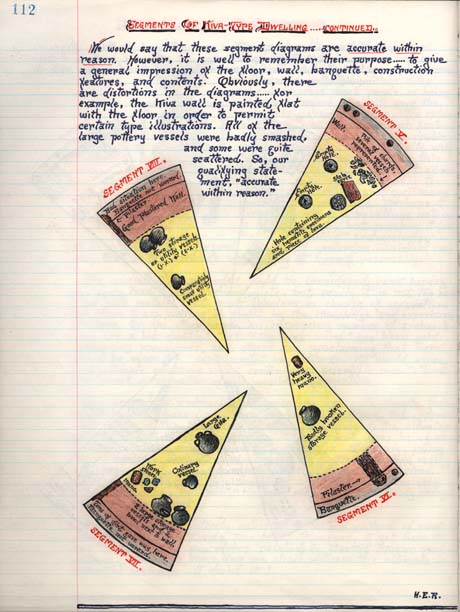 112
Segments Of Kiva-Type Dwelling.....continued.
We would say that these segment diagrams are accurate within
reason. However, it is well to remember their purpose..... to give
a general impression of the floor, wall, banquette, construction
features, and contents. Obviously, there
are distortions in the diagrams..... For
example, the Kiva wall is painted, flat
with the floor in order to permit
certain type illustrations. All of the
large pottery vessels were badly smashed,
and some were quite
scattered. So, our
qualifying state-
ment, "accurate
within reason."
SEGMENT V.
Wall.
Hole containing
six
specimens
and piece of
SEGMENT VIII.
Good Plastered Wall.
Two storage
or utility vessels
Comparatively
small utility
vessel.
Very
heavy
mano.
Badly broken
storage vessel.
Pilaster
Banquette.
SEGMENT VI.
Large
Olla.
Culinary
vessel.
Work
shelf
4 large storage
vessels and a
bowl near wall
SEGMENT VII.
H.E.R.